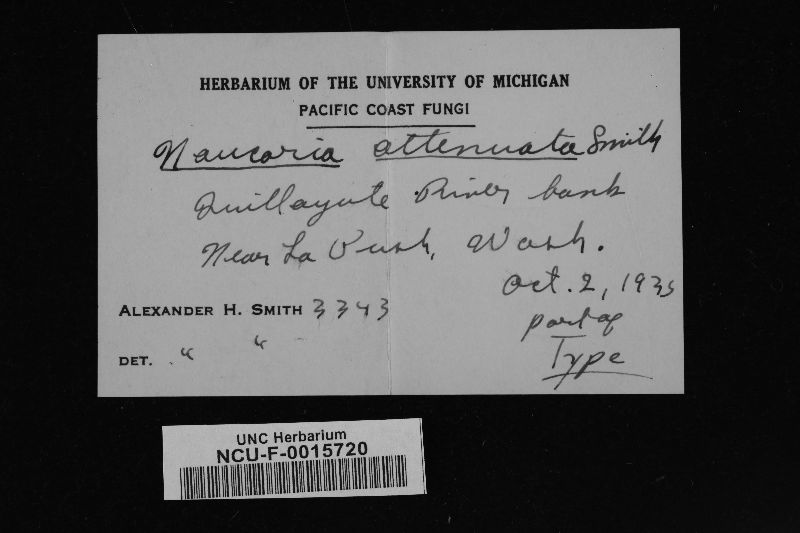 HERBARIUM OF THE UNIVERSITY OF MICHIGAN
PACIFIC COAST FUNGI
Naucoria attenuata Smith
Quillayute River bank
Near La Push, Wash.
Oct. 2, 1935
ALEXANDER H. SMITH 3343
part of
Type
DET. " "
UNC Herbarium
NCU-F-0015720